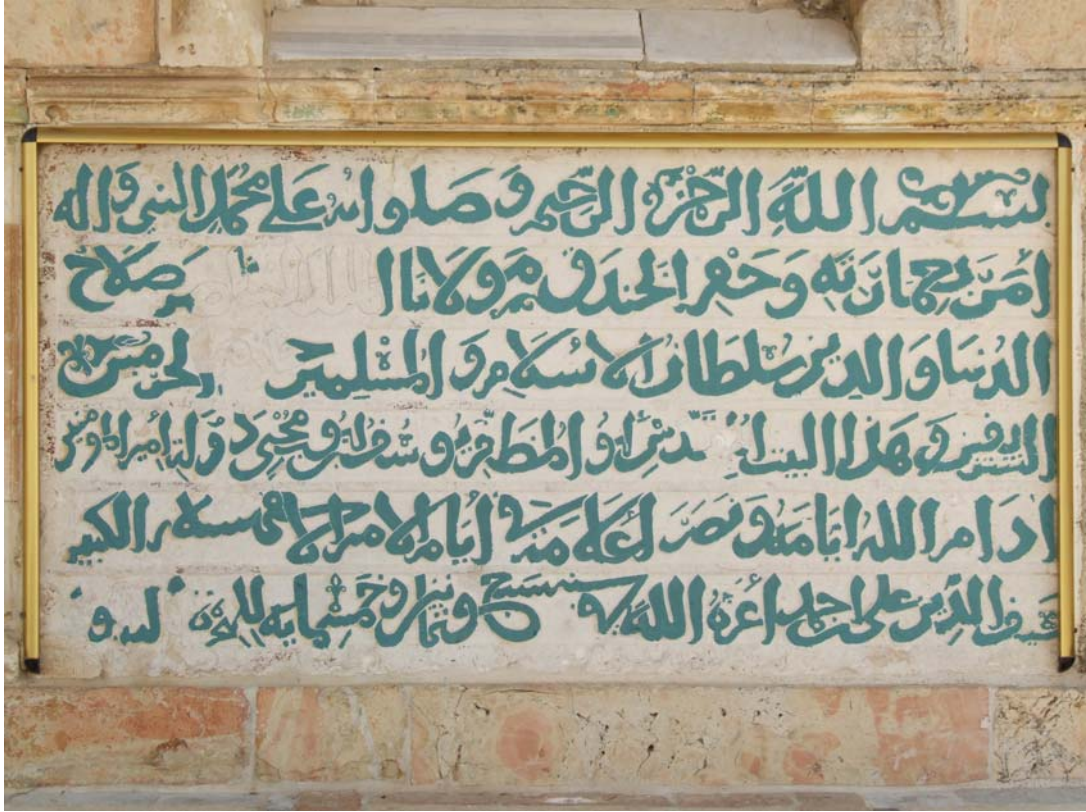 بسم الله الرحمن الرحيم وصلواته على محمد النبي واله
امر بعمارته وحفر الخندق مولانا صلاح
الدنيا والدين سلطان الاسلام والمسلمين الحرمين
الشريفين وهذا البيت ابو المظفر يوسف بن محيي دولة امير المؤمنين
ادام الله ايامه ونصر اعلامه في ايام الامير الاسفهسلار الكبير
سيف الدين علي بن احمد اعزه الله في سنة سبع وثمانين وخمسمايه للهجرة